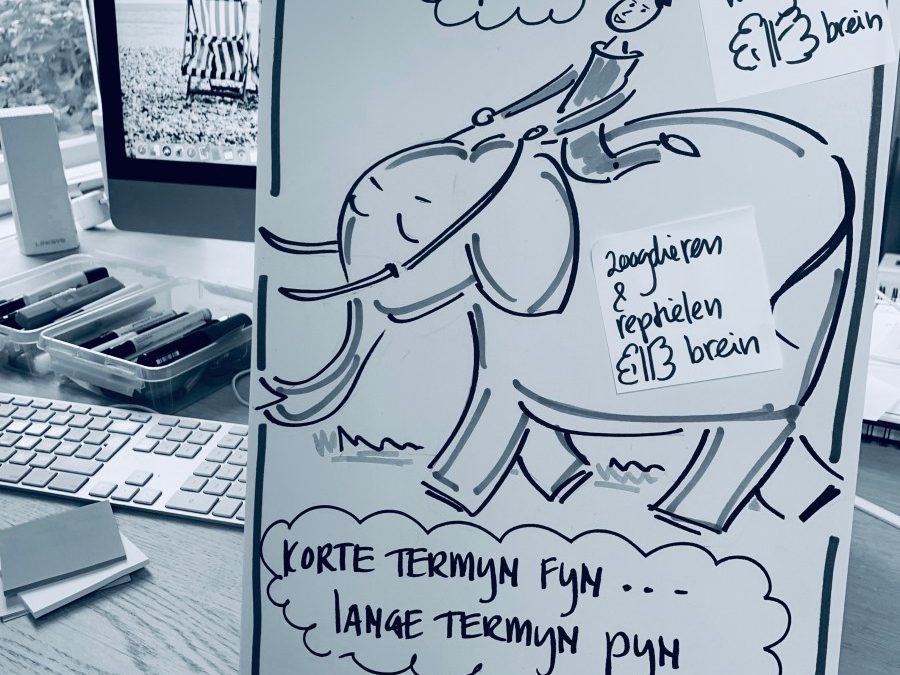 brein
zoogdieren
&
reptielen
brein
KORTE TERMYN FYN...
LANGE TERMYN PYN
LINKSYS